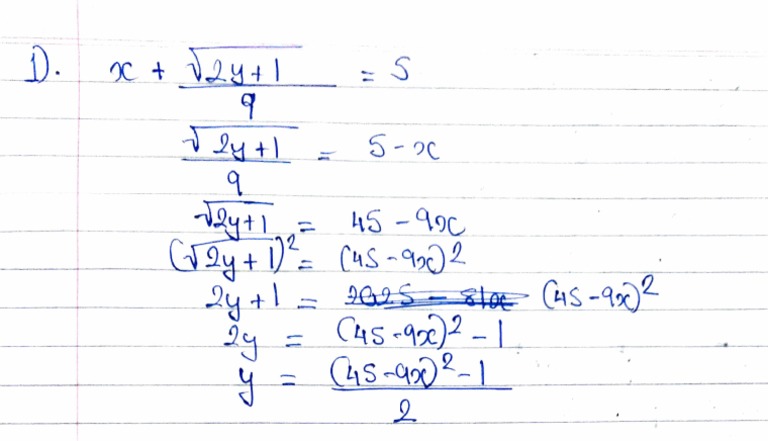 1). x + √(2y+1) / 9 = 5
√(2y+1) / 9 = 5-x
√(2y+1) = 45-9x
(√(2y+1))² = (45-9x)²
2y+1 = ~~2025 - 81x~~ (45-9x)²
2y = (45-9x)² - 1
y = ((45-9x)² - 1) / 2